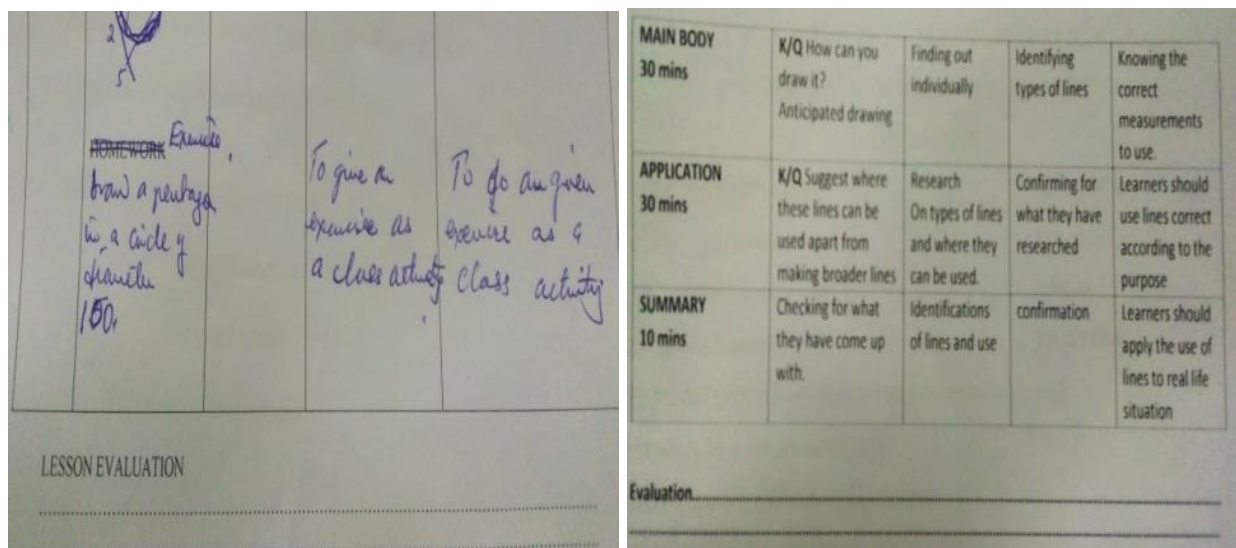 2
5
HOMEWORK Exercise.
Draw a pentagon
in a circle of
diameter
150.
To give an
exercise as
a class activity.
To do an given
exercise as a
class activity
LESSON EVALUATION
MAIN BODY
30 mins
K/Q How can you
draw it?
Anticipated drawing
Finding out
individually
Identifying
types of lines
Knowing the
correct
measurements
to use.
APPLICATION
30 mins
K/Q Suggest where
these lines can be
used apart from
making broader lines
Research
On types of lines
and where they
can be used.
Confirming for
what they have
researched
Learners should
use lines correct
according to the
purpose
SUMMARY
10 mins
Checking for what
they have come up
with.
Identifications
of lines and use
confirmation
Learners should
apply the use of
lines to real life
situation
Evaluation